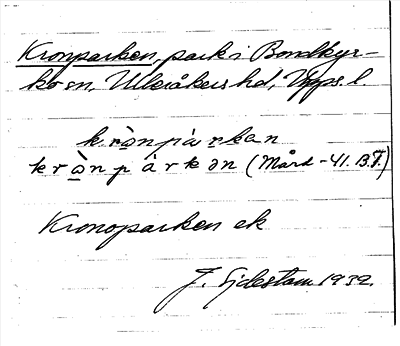 Kronparken, park i Bondkyr-
ko sn, Ulleråkers hd, Upps. l.
krònpàrkan
kròn p árkən (Mård -41. B.T.)
Kronoparken ek
J. Sjdestam 1932.